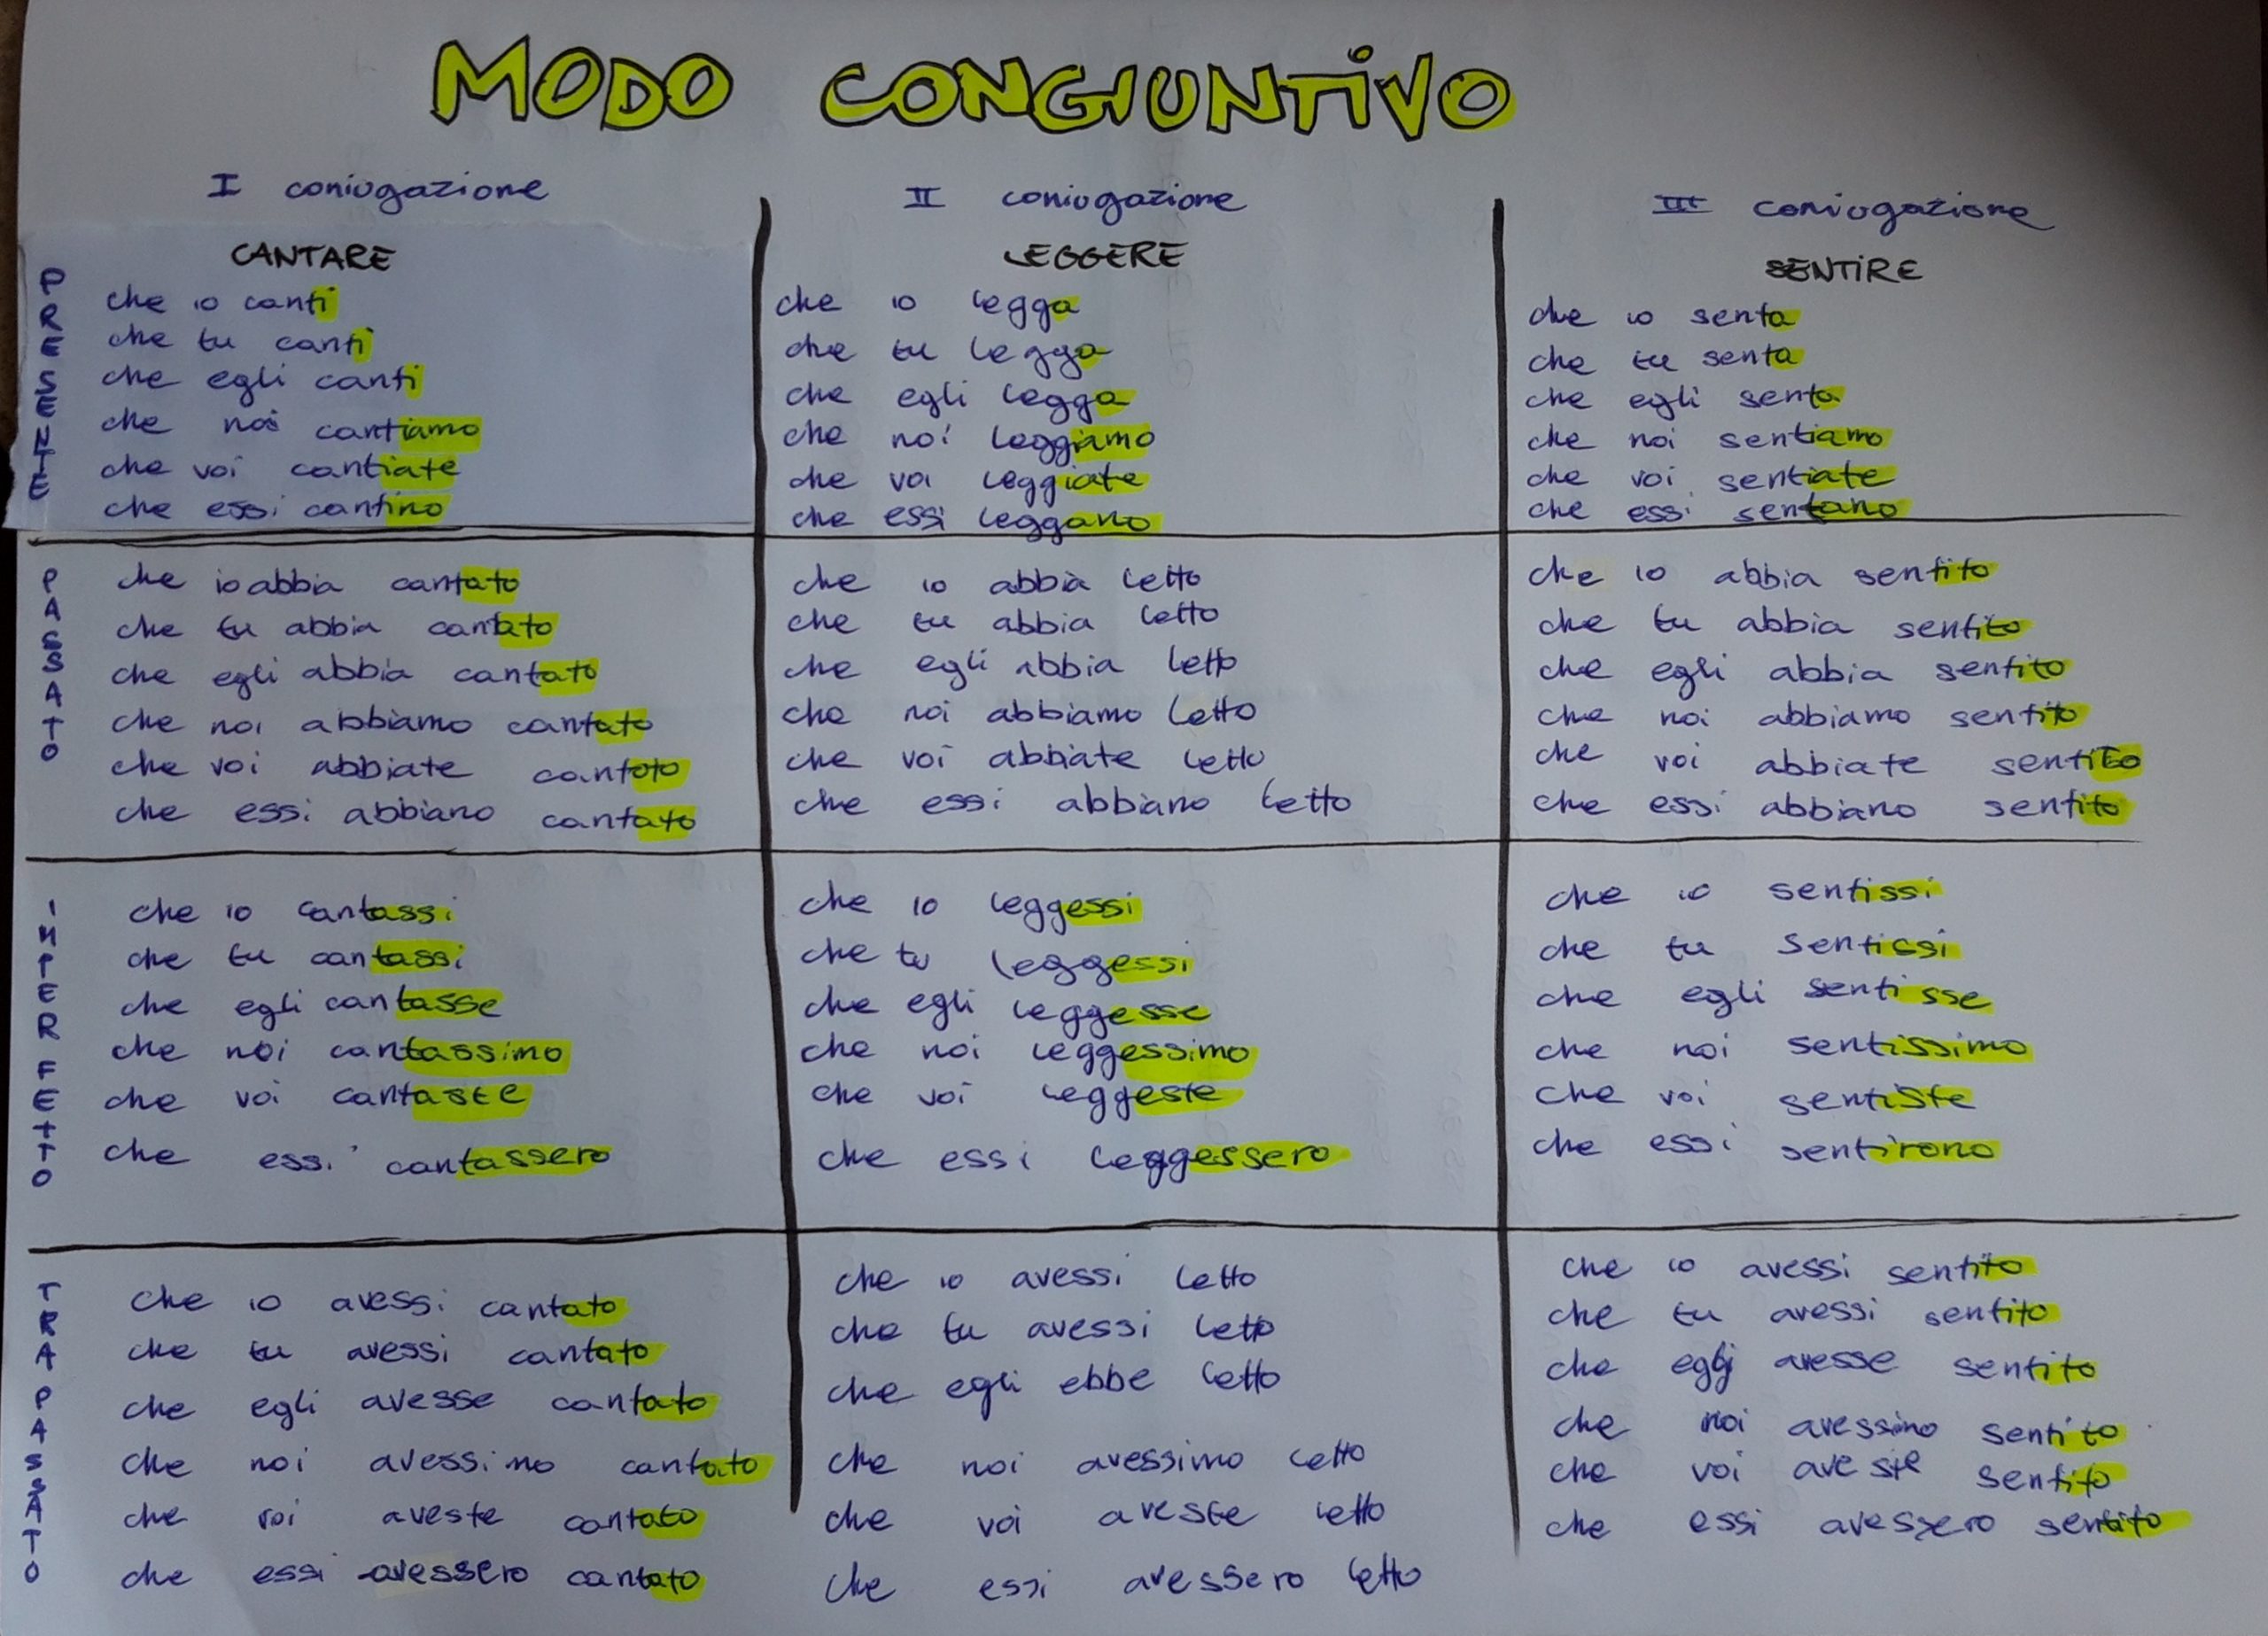 MODO CONGIUNTIVO
I coniugazione
CANTARE
PRESENTE
che io canti
che tu canti
che egli canti
che noi cantiamo
che voi cantiate
che essi cantino
PASSATO
che io abbia cantato
che tu abbia cantato
che egli abbia cantato
che noi abbiamo cantato
che voi abbiate cantato
che essi abbiano cantato
IMPERFETTO
che io cantassi
che tu cantassi
che egli cantasse
che noi cantassimo
che voi cantaste
che essi cantassero
TRAPASSATO
che io avessi cantato
che tu avessi cantato
che egli avesse cantato
che noi avessimo cantato
che voi aveste cantato
che essi avessero cantato
II coniugazione
LEGGERE
che io legga
che tu legga
che egli legga
che noi leggiamo
che voi leggiate
che essi leggano
che io abbia letto
che tu abbia letto
che egli abbia letto
che noi abbiamo letto
che voi abbiate letto
che essi abbiano letto
che io leggessi
che tu leggessi
che egli leggesse
che noi leggessimo
che voi leggeste
che essi leggessero
che io avessi letto
che tu avessi letto
che egli ebbe letto
che noi avessimo letto
che voi aveste letto
che essi avessero letto
III coniugazione
SENTIRE
che io senta
che tu senta
che egli senta
che noi sentiamo
che voi sentiate
che essi sentano
che io abbia sentito
che tu abbia sentito
che egli abbia sentito
che noi abbiamo sentito
che voi abbiate sentito
che essi abbiano sentito
che io sentissi
che tu sentissi
che egli sentisse
che noi sentissimo
che voi sentiste
che essi sentirono
che io avessi sentito
che tu avessi sentito
che egli avesse sentito
che noi avessimo sentito
che voi aveste sentito
che essi avessero sentito